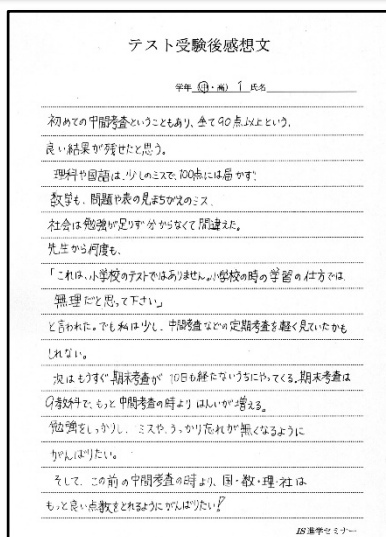 テスト受験後感想文
学年 中・高 1 氏名
初めての中間考査ということもあり、全て90点以上という、
良い結果が残せたと思う。
理科や国語は、少しのミスで、100点には届かず、
数学も、問題や表の見まちがえのミス、
社会は勉強が足りず分からなくて間違えた。
先生から何度も、
「これは、小学校のテストではありません。小学校の時の学習の仕方では、
無理だと思って下さい」
と言われた。でも私は少し、中間考査などの定期考査を軽く見ていたかも
しれない。
次はもうすぐ期末考査が10日も経たないうちにやってくる。期末考査は
9教科で、もっと中間考査の時よりはんいが増える。
勉強をしっかりし、ミスや、うっかり忘れが無くなるように
がんばりたい。
そして、この前の中間考査の時より、国・数・理・社は
もっと良い点数をとれるようにがんばりたい!
IS進学セミナー